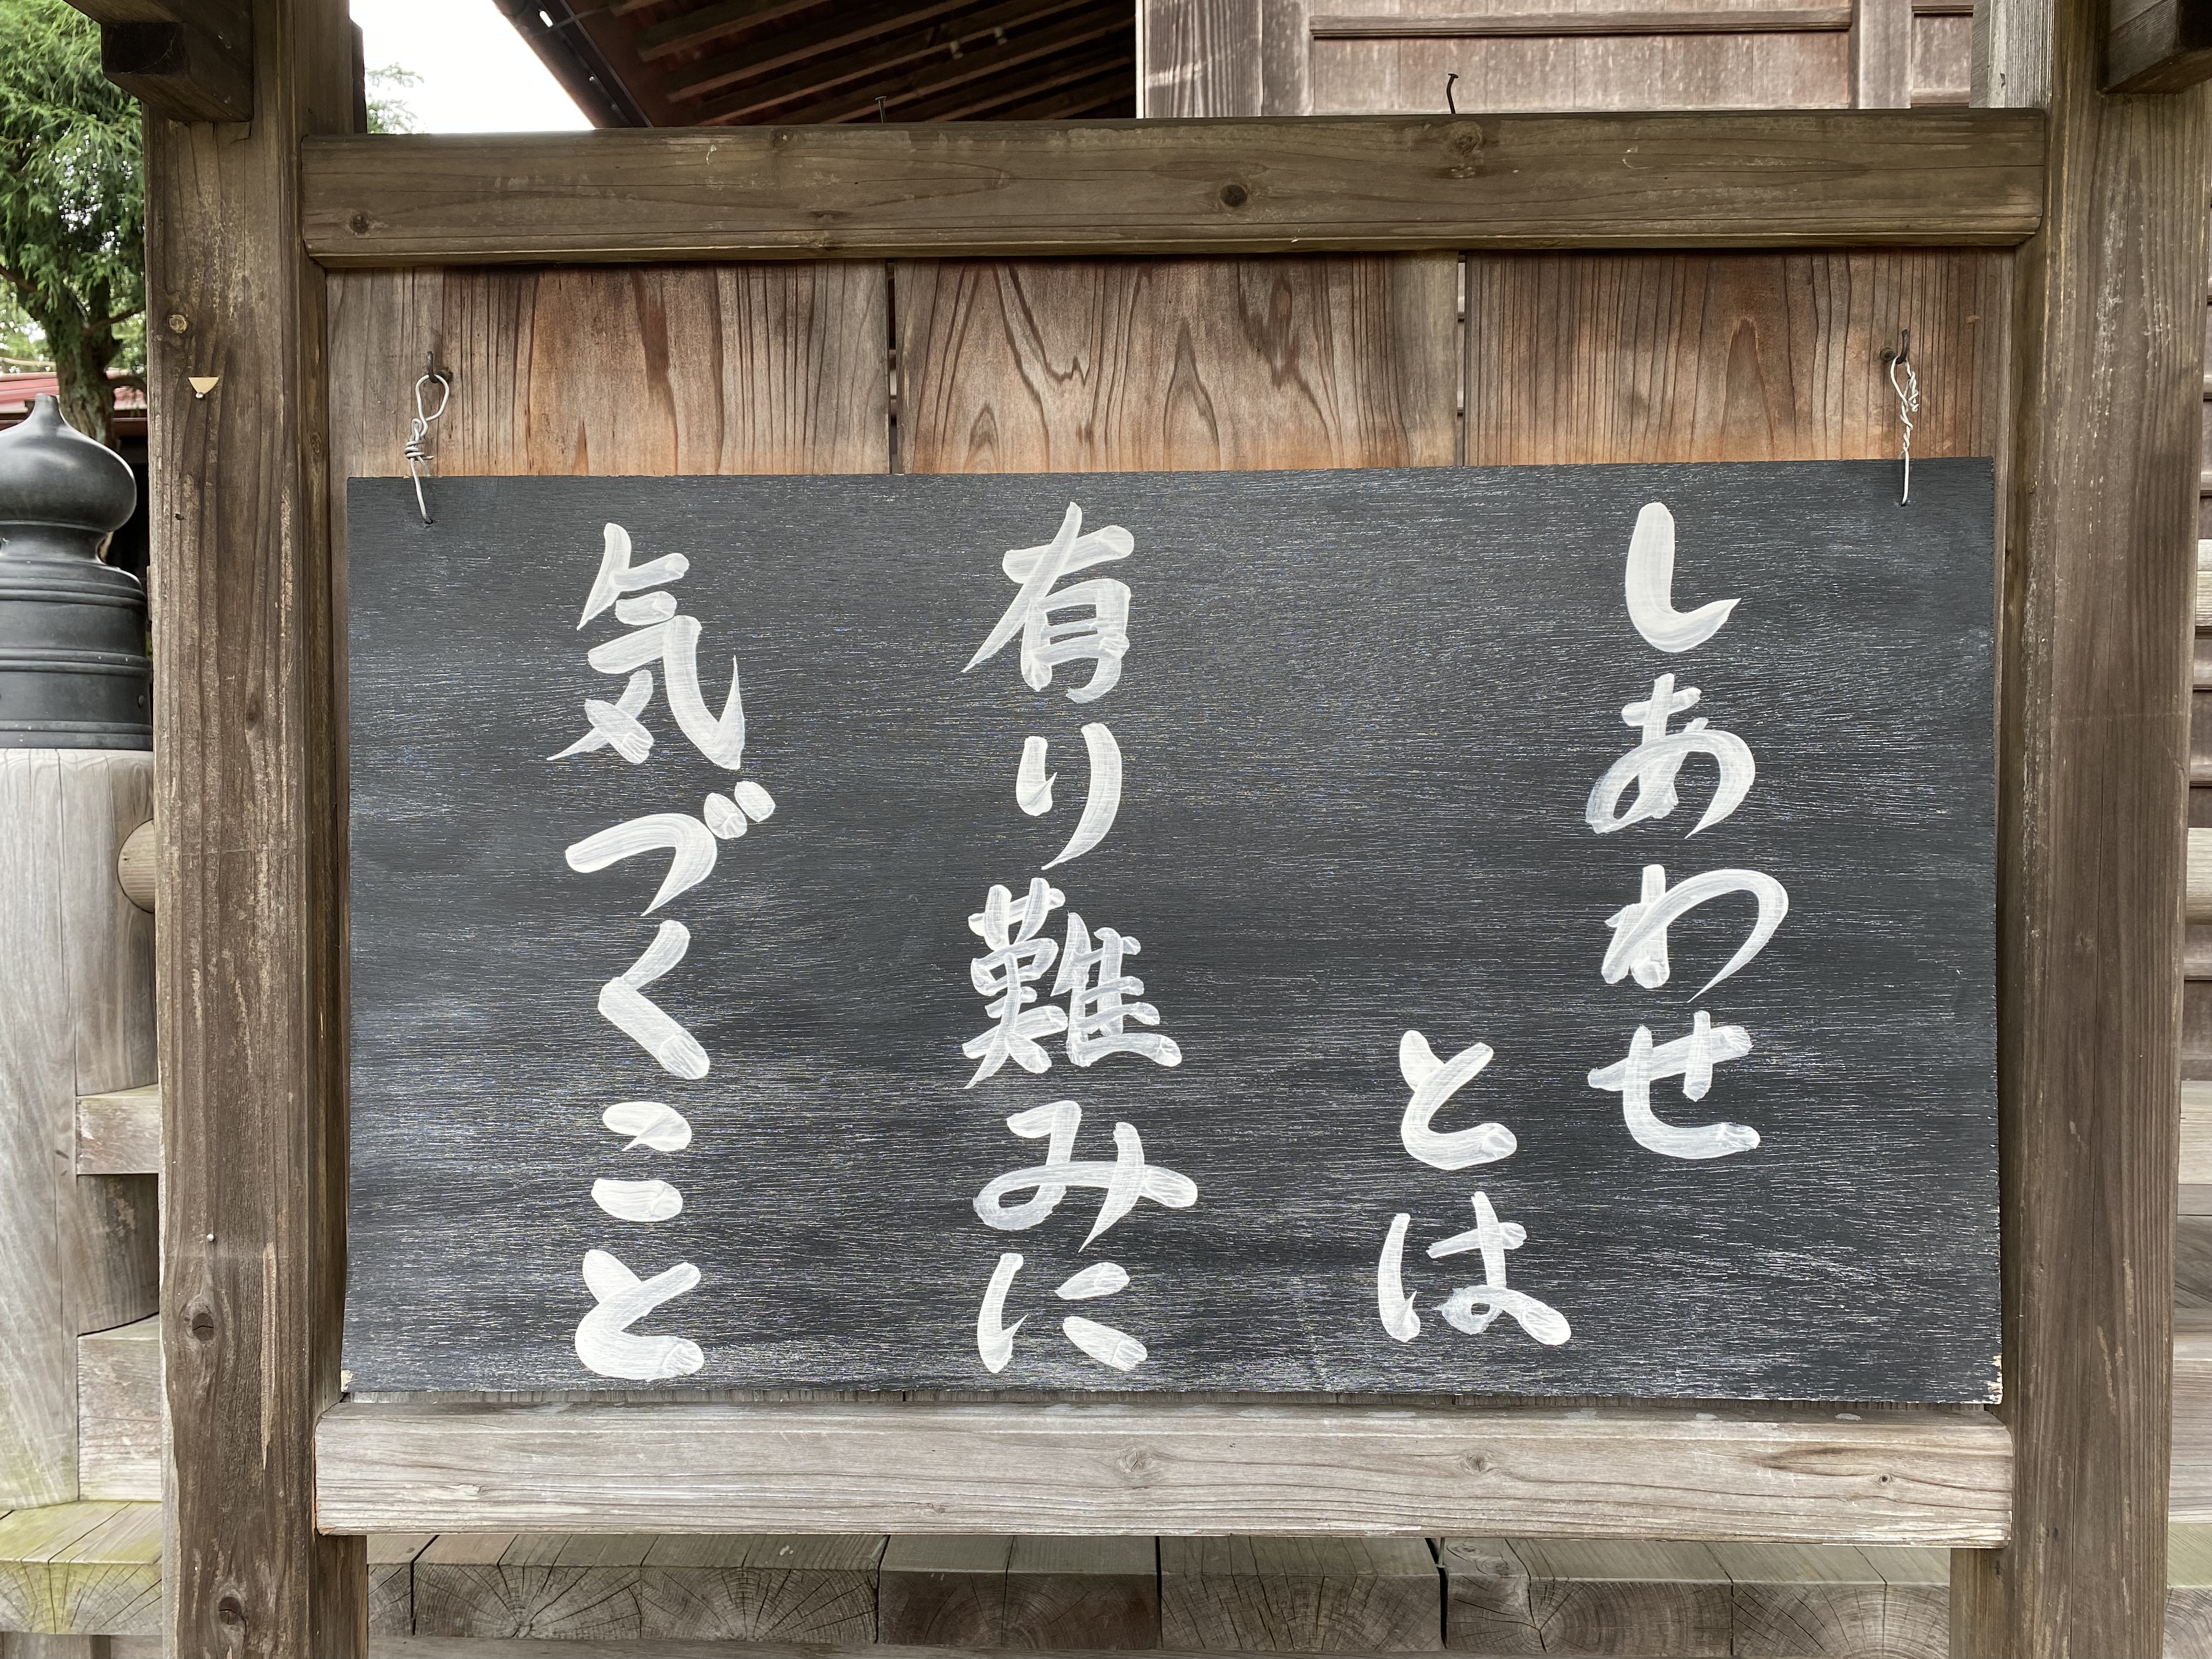 しあわせ
とは
有り難みに
気づくこと